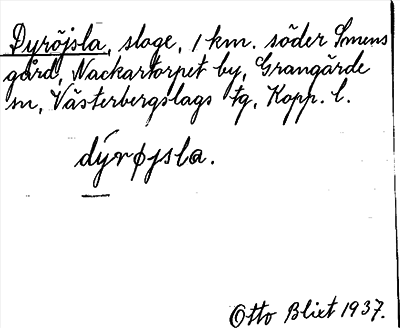 Dyröjsla, sloge, 1 km. söder Smens
gård, Nackartorpet by, Grangärde
sn, Västerbergslags tg, Kopp. l.
dýrøjsla.
Otto Blixt 1937.